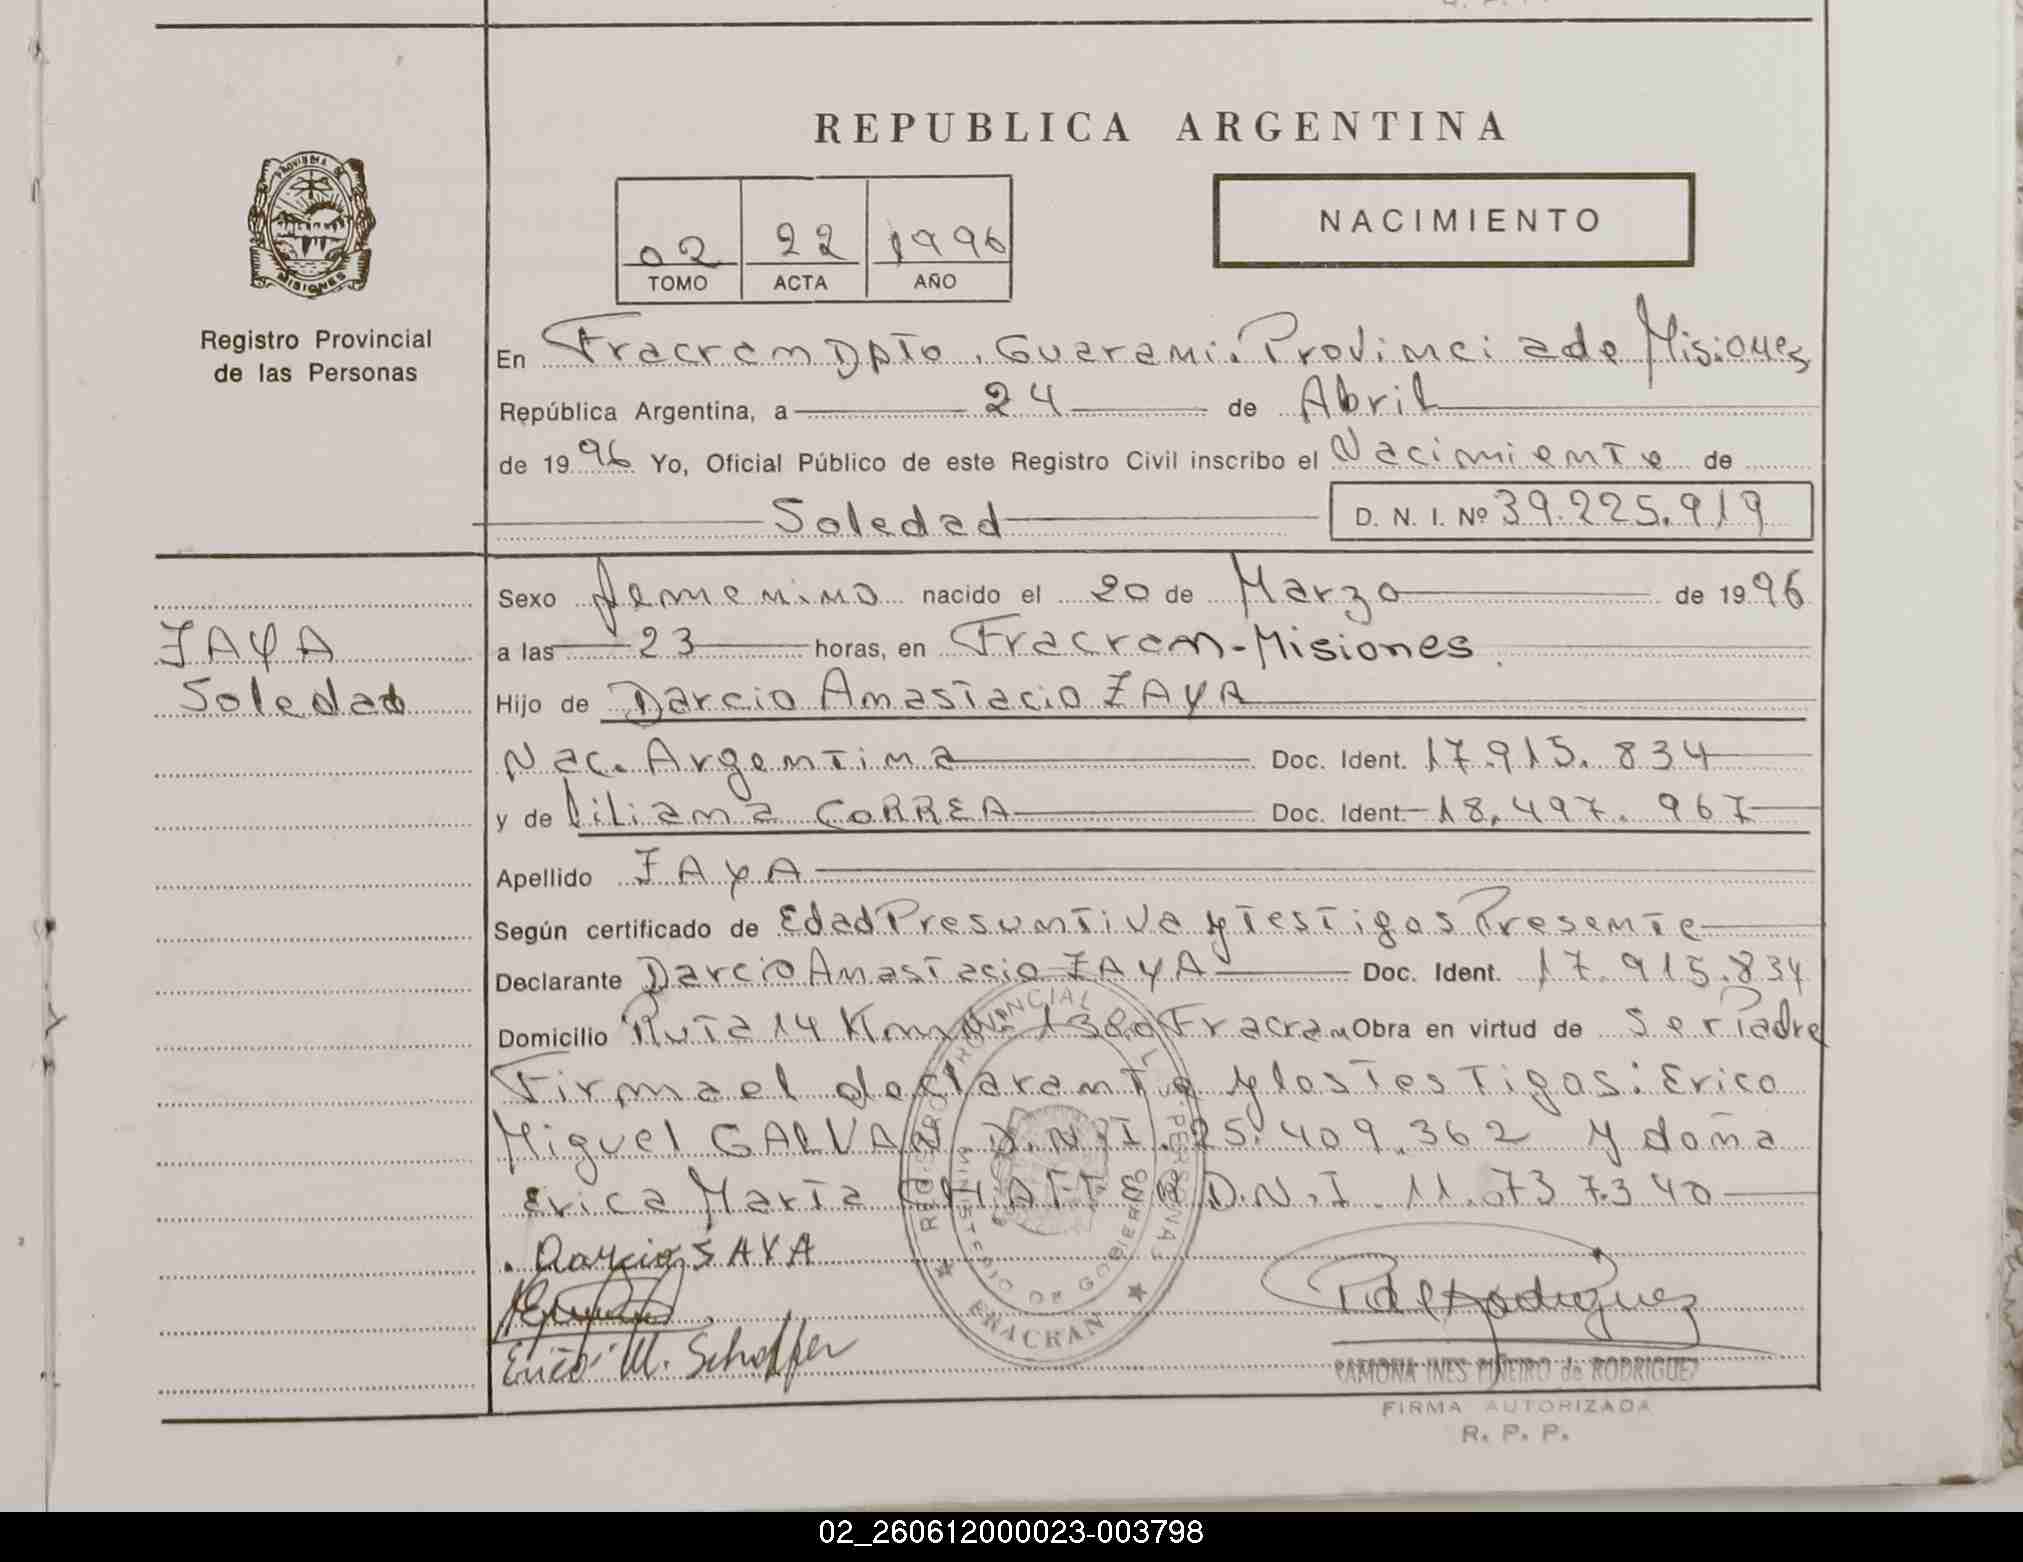 REPUBLICA ARGENTINA
PROVINCIA DE
MISIONES
Registro Provincial
de las Personas
02 22 1996
TOMO ACTA AÑO
NACIMIENTO
En Fracran Dpto. Guarani. Provincia de Misiones
República Argentina, a 24 de Abril
de 1996 Yo, Oficial Público de este Registro Civil inscribo el Nacimiento de
Soledad D. N. I. Nº 39.225.919
ZAYA
Soledad
Sexo femenino nacido el 20 de Marzo de 1996
a las 23 horas, en Fracran-Misiones.
Hijo de Darcio Anastacio ZAYA
Nac. Argentina Doc. Ident. 17.915.834
y de Liliana CORREA Doc. Ident. 18.497.967
Apellido ZAYA
Según certificado de Edad Presuntiva y Testigos Presente
Declarante Darcio Anastacio ZAYA Doc. Ident. 17.915.834
Domicilio Ruta 14 Km 1380 Fracran Obra en virtud de ser Padre
Firma el declarante y los Testigos: Erico
Miguel GALVAN D.N.I. 25.409.362 y doña
Erica Marta D.N.I. 11.737.340
Darcio SAYA
Erico M.
REGISTRO PROVINCIAL DE L. PERSONAS
MINISTERIO DE GOBIERNO
FRACRAN
RAMONA INES PIÑEIRO de RODRIGUEZ
FIRMA AUTORIZADA
R. P. P.
02_260612000023-003798